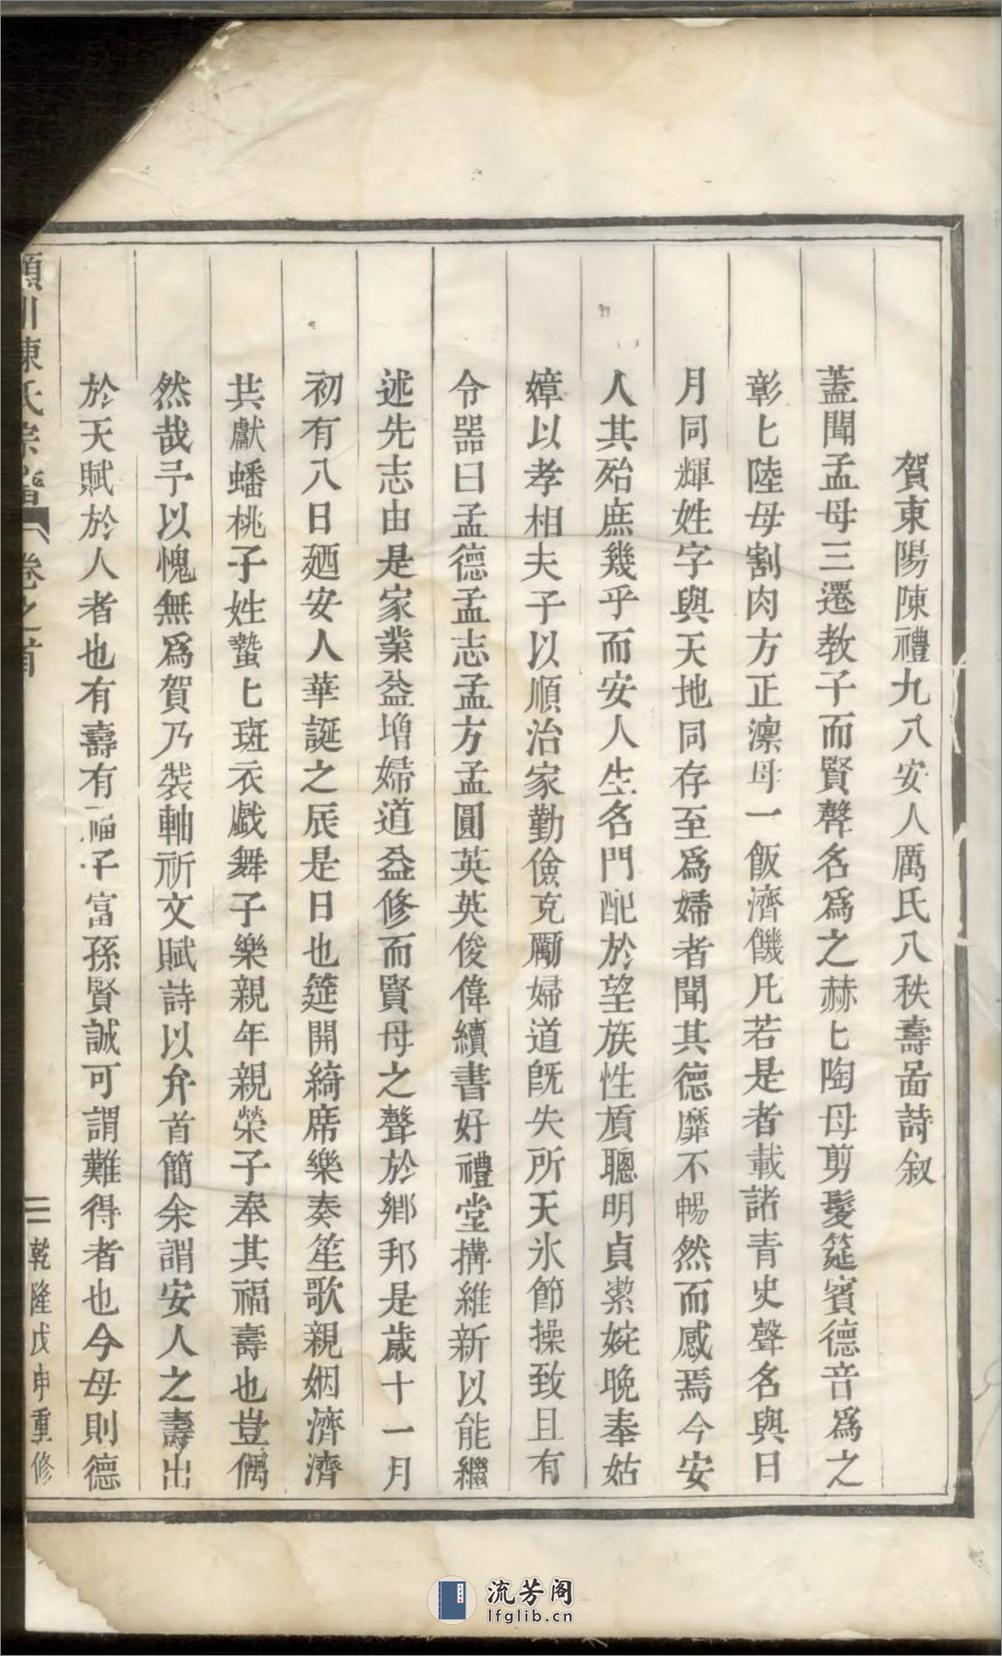 賀東陽陳禮九八安人厲氏八秩壽啚詩叙
蓋聞孟母三遷教子而賢聲名爲之赫匕陶母剪髮筵賓德音爲之
彰匕陸母割肉方正濼母一飯濟饑凡若是者載諸青史聲名與日
月同輝姓字與天地同存至爲婦者聞其德靡不暢然而感焉今安
人其殆庶幾乎而安人生名門配於望族性質聰明貞潔婉晚奉姑
嫜以孝相夫子以順治家勤儉克勵婦道旣失所天氷節操致且有
令器曰孟德孟志孟方孟圓英英俊偉續書好禮堂搆維新以能繼
述先志由是家業益增婦道益修而賢母之聲於鄉邦是歲十一月
初有八日廼安人華誕之辰是日也筵開綺席樂奏笙歌親姻濟濟
共獻蟠桃子姓蟄匕斑衣戲舞子樂親年親榮子奉其福壽也豈偶
然哉予以愧無爲賀乃裝軸祈文賦詩以弁首簡余謂安人之壽出
於天賦於人者也有壽有福子富孫賢誠可謂難得者也今母則德
川陳氏宗譜 卷之首
三 乾隆戊申重修
流芳阁
lfglib.cn